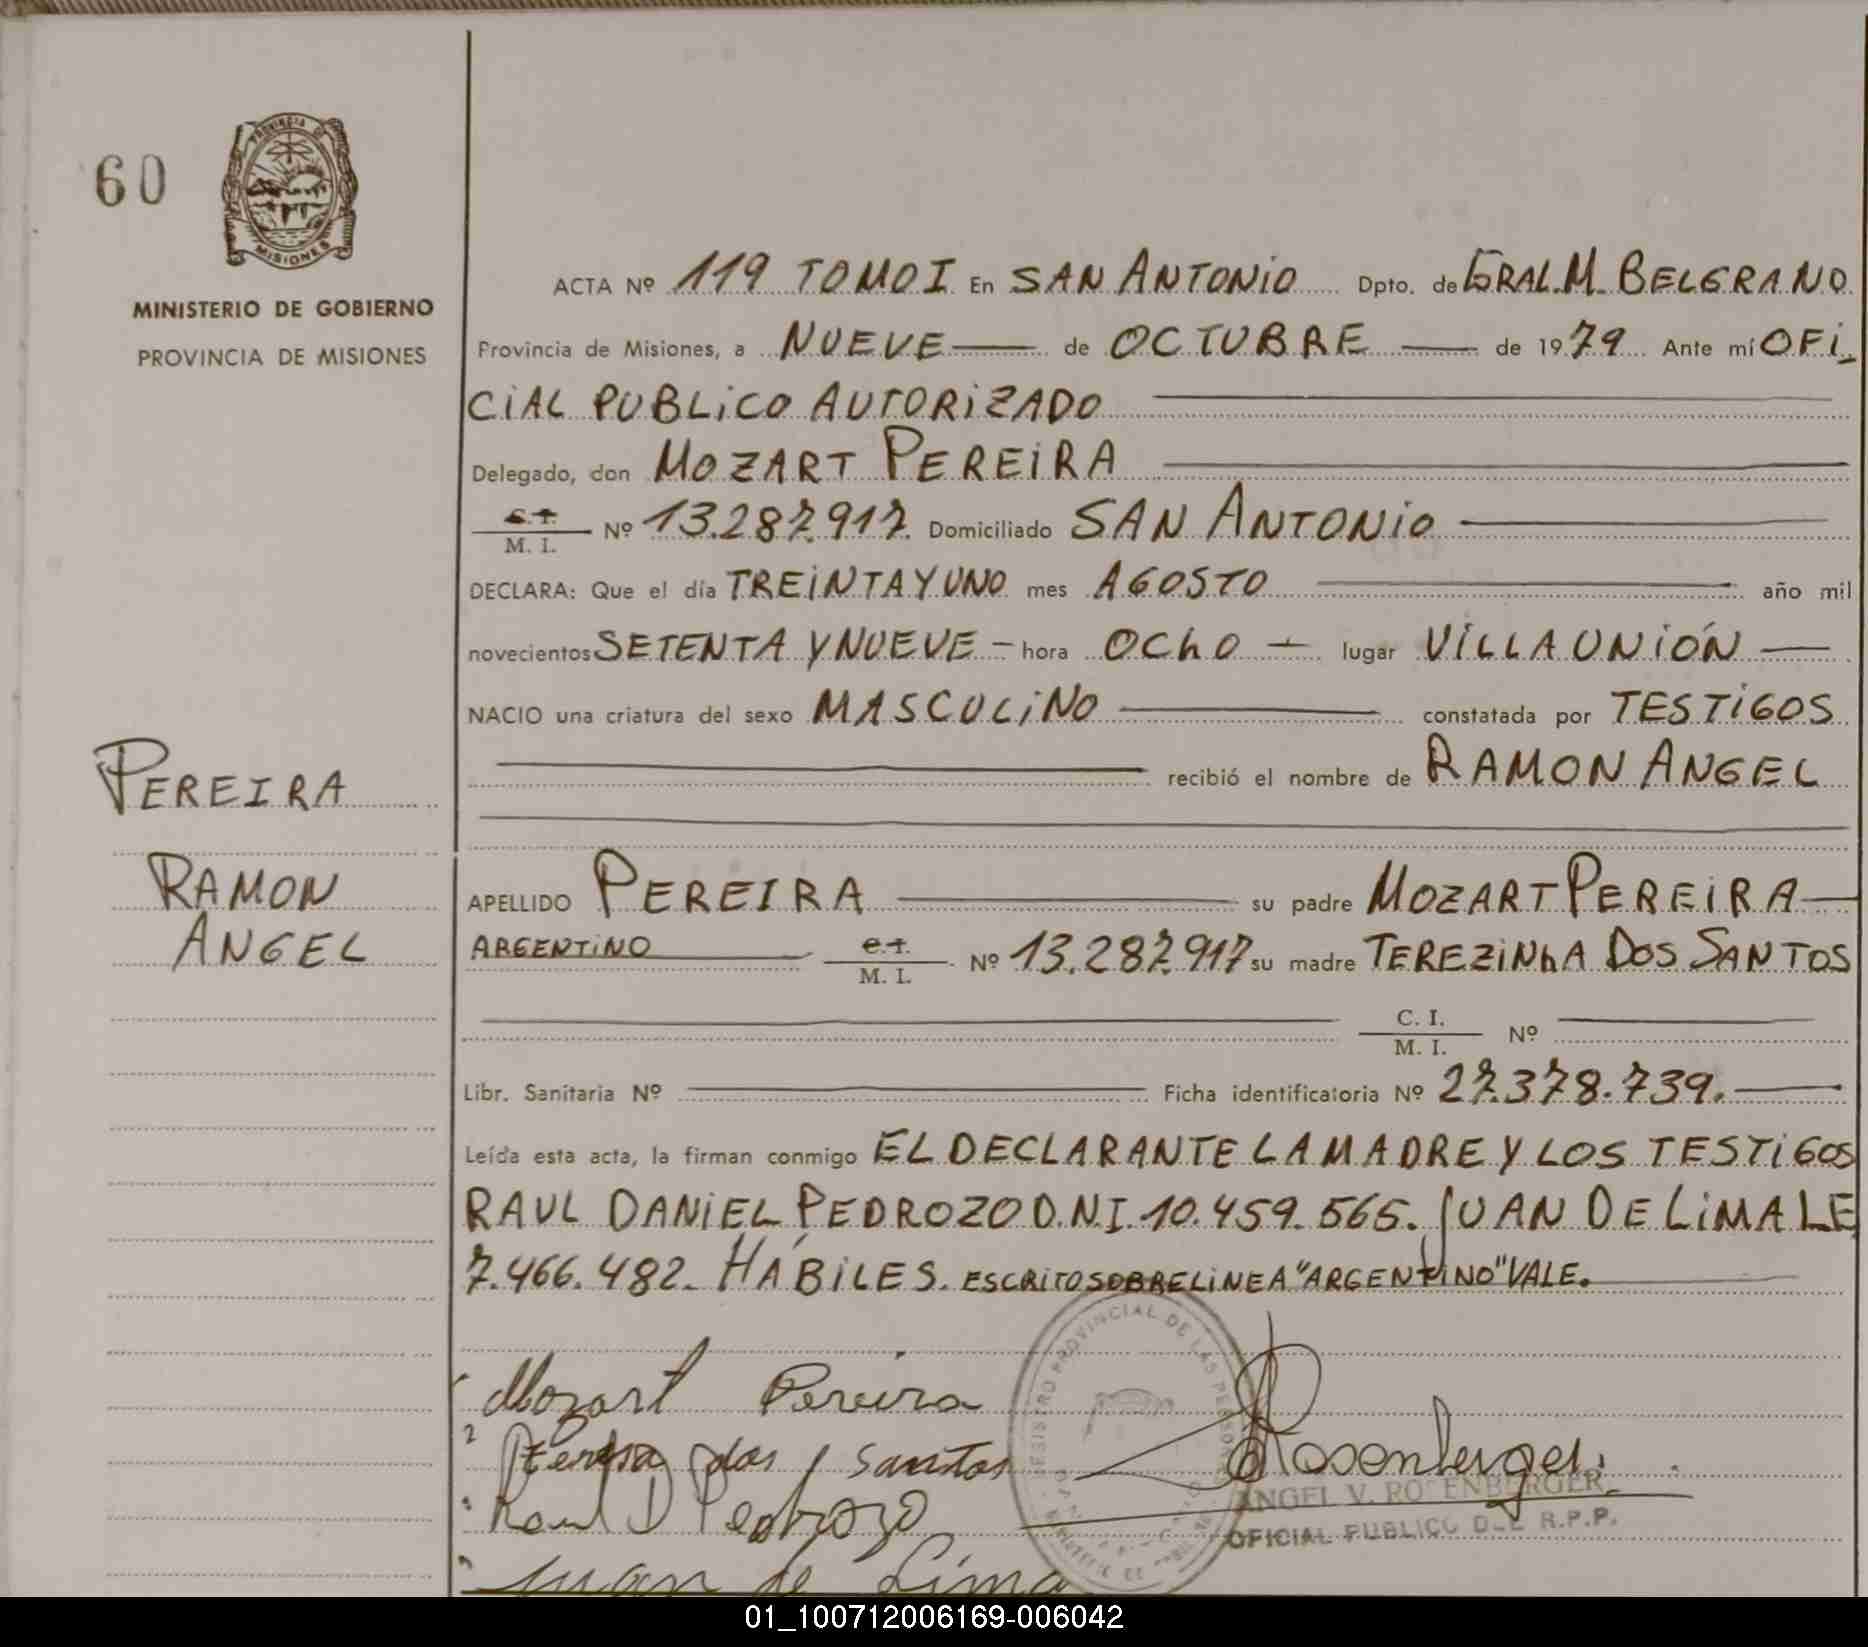 60
PROVINCIA DE
MISIONES
MINISTERIO DE GOBIERNO
PROVINCIA DE MISIONES
PEREIRA
RAMON
ANGEL
ACTA Nº 119 TOMO I En SAN ANTONIO Dpto. de GRAL. M. BELGRANO
Provincia de Misiones, a NUEVE — de OCTUBRE — de 1979 Ante mí OFI-
CIAL PUBLICO AUTORIZADO
Delegado, don MOZART PEREIRA
C. I. / M. I. Nº 13.287.917 Domiciliado SAN ANTONIO
DECLARA: Que el día TREINTA Y UNO mes AGOSTO año mil
novecientos SETENTA Y NUEVE - hora OCHO — lugar VILLA UNIÓN —
NACIO una criatura del sexo MASCULINO constatada por TESTIGOS
recibió el nombre de RAMON ANGEL
APELLIDO PEREIRA su padre MOZART PEREIRA —
ARGENTINO C. I. / M. I. Nº 13.287.917 su madre TEREZINHA DOS SANTOS
C. I. / M. I. Nº
Libr. Sanitaria Nº Ficha identificatoria Nº 27.378.739.
Leída esta acta, la firman conmigo EL DECLARANTE LA MADRE Y LOS TESTIGOS
RAUL DANIEL PEDROZO D.N.I. 10.459.565. JUAN DE LIMA LE
7.466.482. HÁBILES. ESCRITO SOBRE LINEA "ARGENTINO" VALE.
Mozart Pereira
dos santos
Raul D Pedrozo
Juan de Lima
Rosenberger
REGISTRO PROVINCIAL DE LAS PERSONAS
ANGEL V. ROSENBERGER
OFICIAL PUBLICO DEL R.P.P.
01_100712006169-006042